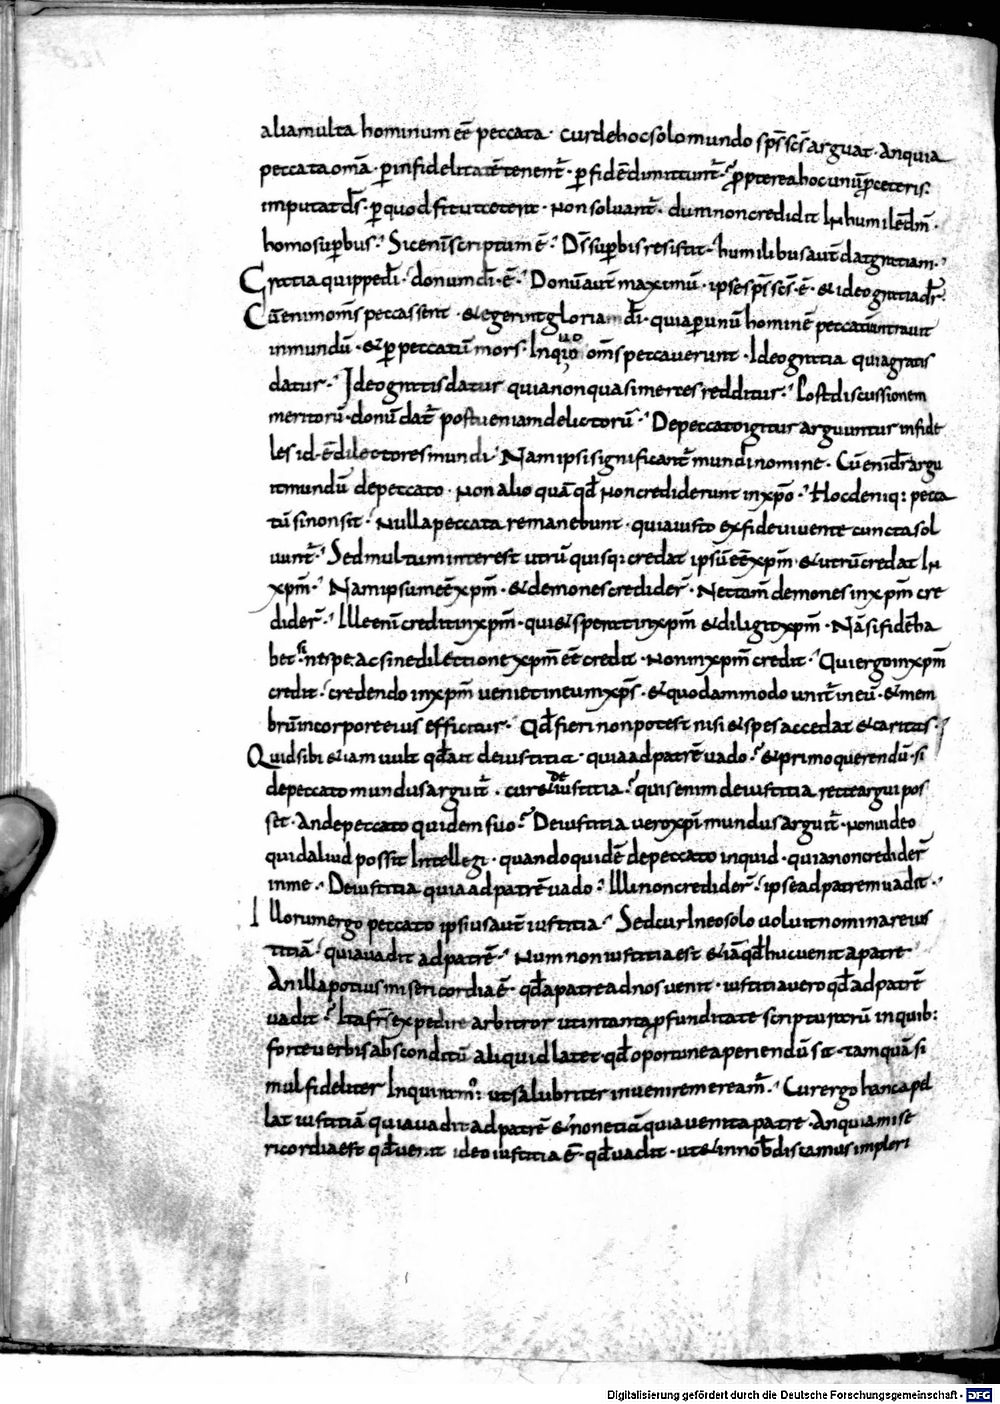 aliamulta hominum eē peccata · cur de hoc solo mundo sps̄ scs̄ arguat · An quia
peccata om̄a · ꝑ infidelitatē tenent̄ · ꝑ fidē dimittunt̄ · ꝓpterea hoc unū p̄ ceteris ·
imputat ds̄ · ꝑ quod fit ut cetera · non soluant̄ · dum non credidit in humilē dm̄ ·
homo suꝑbus · Sic eni scriptum ē · Ds̄ suꝑbis resistit · humilibus aut̄ dat gratiam ·
Gratia quippe di · donum di ē · Donū aut̄ maximū · ipse sps̄ scs̄ · ē · & ideo gratia dr̄ ·
Cū enim oms̄ peccassent · & egerint gloriam di · quia ꝑ unū hominē peccatū intrauit
in mundū · & ꝑ peccatū mors · In quo oms̄ peccauerunt · Ideo gratia quia gratis
datur · Ideo gratis datur quia non quasi merces redditur · Post discussionem
meritorū · donū dat̄ post ueniam delictorū · De peccato igitur arguuntur infide
les id · ē dilectores mundi · Nam ipsi significant̄ mundi nomine · Cū enī dr̄ argu
it mundū de peccato · non alio quā qd̄ non crediderunt in xpō · Hoc deniq: pecca
tū si non sit · Nulla peccata remanebunt · quia iusto ex fide uiuente cuncta sol
uunt̄ · Sed multum interest utrū quisq: credat ipsū eē xpm̄ · & utrū credat in
xpm̄ · Nam ipsum eē xpm̄ · & demones credider̄ · Nec tam̄ demones in xpm̄ cre
dider̄ · Ille eni credit in xpm̄ · qui & sperat in xpm̄ & diligit xpm̄ · Nā si fidē ha
bet · ne spe ac sine dilectione xpm̄ eē credit · non in xpm̄ credit · Qui ergo in xpm̄
credit · credendo in xpm̄ ueniet in eum xps̄ · & quodammodo unit̄ in eū · & mem
brū in corpore eius efficitur · Qd̄ fieri non potest nisi & spes accedat & caritas ·
Quid sibi & iam uult qd̄ ait de iustitia · quia ad patrē uado · & primo querendū · si
de peccato mundus arguit̄ · cur & de iustitia · quis enim de iustitia recte argui pos
set · An de peccato quidem suo · De iustitia uero xpi mundus arguit̄ · non uideo
quid aliud possit Intellegi · quando quidē de peccato inquid · quia non credider̄
in me · De iustitia quia ad patrē uado · Illi non credider̄ · ipse ad patrem uadit ·
Illorum ergo peccato ipsius aut̄ iustitia · Sed cur In eo solo uoluit nominare ius
titiā · quia uadit ad patrē · Num non iustitia est & iā qd̄ huc uenit a patre
An illa potius misericordia ē · qd̄ a patre ad nos uenit · iustitia uero qd̄ ad patrē
uadit · Ita frs̄ expedire arbitror ut in tanta ꝓfunditate scripturarū in quib:
forte uerbis absconditū aliquid latet · qd̄ oportune aperiendū sit · tamquā si
mul fideliter Inquiram: ut salubriter inuenire meream̄ · Cur ergo hanc apel
lat iustitiā quia uadit ad patrē & non etiā quia uenit a patre · An quia mise
ricordia est qd̄ uenit ideo iustitia ē · qd̄ uadit · ut & in nob̄ discamus impleri